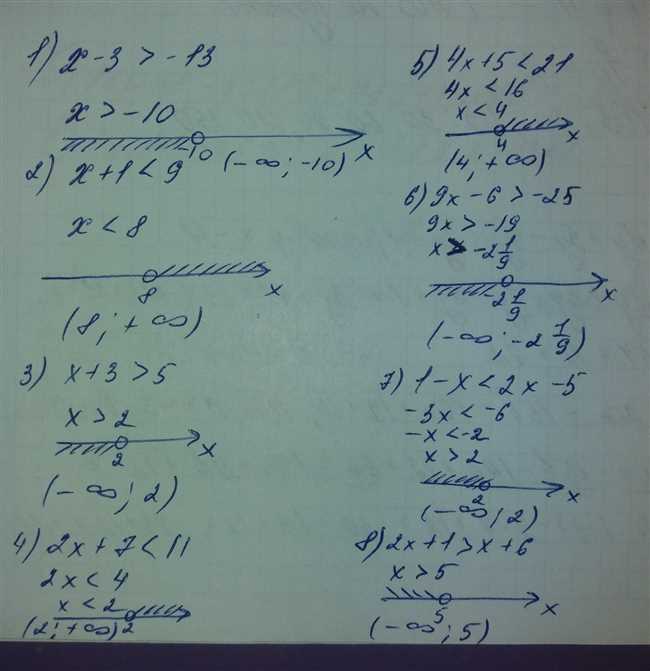 1) x - 3 > -13
x > -10
-10
(-∞; -10)
x
2) x + 1 < 9
x < 8
8
x
(8; +∞)
3) x + 3 > 5
x > 2
2
x
(-∞; 2)
4) 2x + 7 < 11
2x < 4
x < 2
(2; +∞)
2
5) 4x + 5 < 21
4x < 16
x < 4
4
x
(4; +∞)
6) 9x - 6 > -25
9x > -19
x > -2 1/9
-2 1/9
x
(-∞; -2 1/9)
7) 1 - x < 2x - 5
-3x < -6
-x < -2
x > 2
2
x
(-∞; 2)
8) 2x + 1 > x + 6
x > 5
5
x
(-∞; 5)